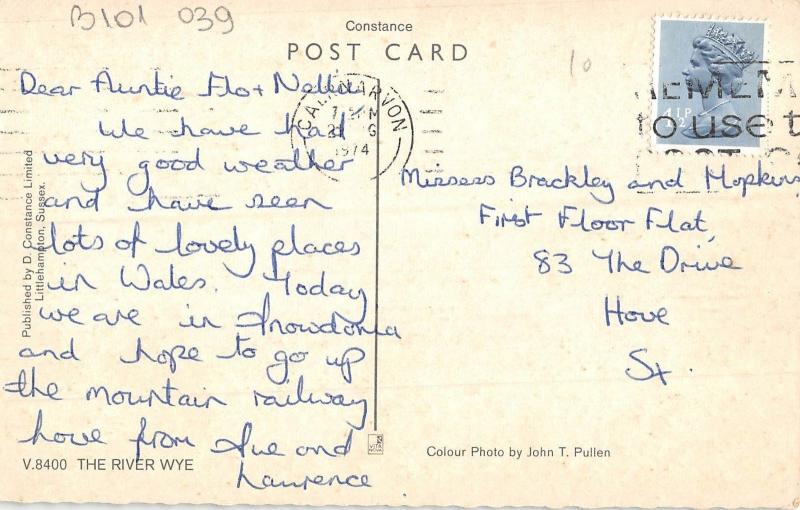 B101 039
Constance
POST CARD
10
Dear Auntie Flo + Nellie
We have had
very good weather
and have seen
lots of lovely places
in Wales. Today
we are in Snowdonia
and hope to go up
the mountain railway
love from Sue and
Laurence
CAERNARVON
1974
4½P
REMEM
to use t
Missess Brackley and Hopkins
First Floor Flat,
83 The Drive
Hove
Sx.
Published by D. Constance Limited
Littlehampton, Sussex.
V.8400 THE RIVER WYE
Colour Photo by John T. Pullen